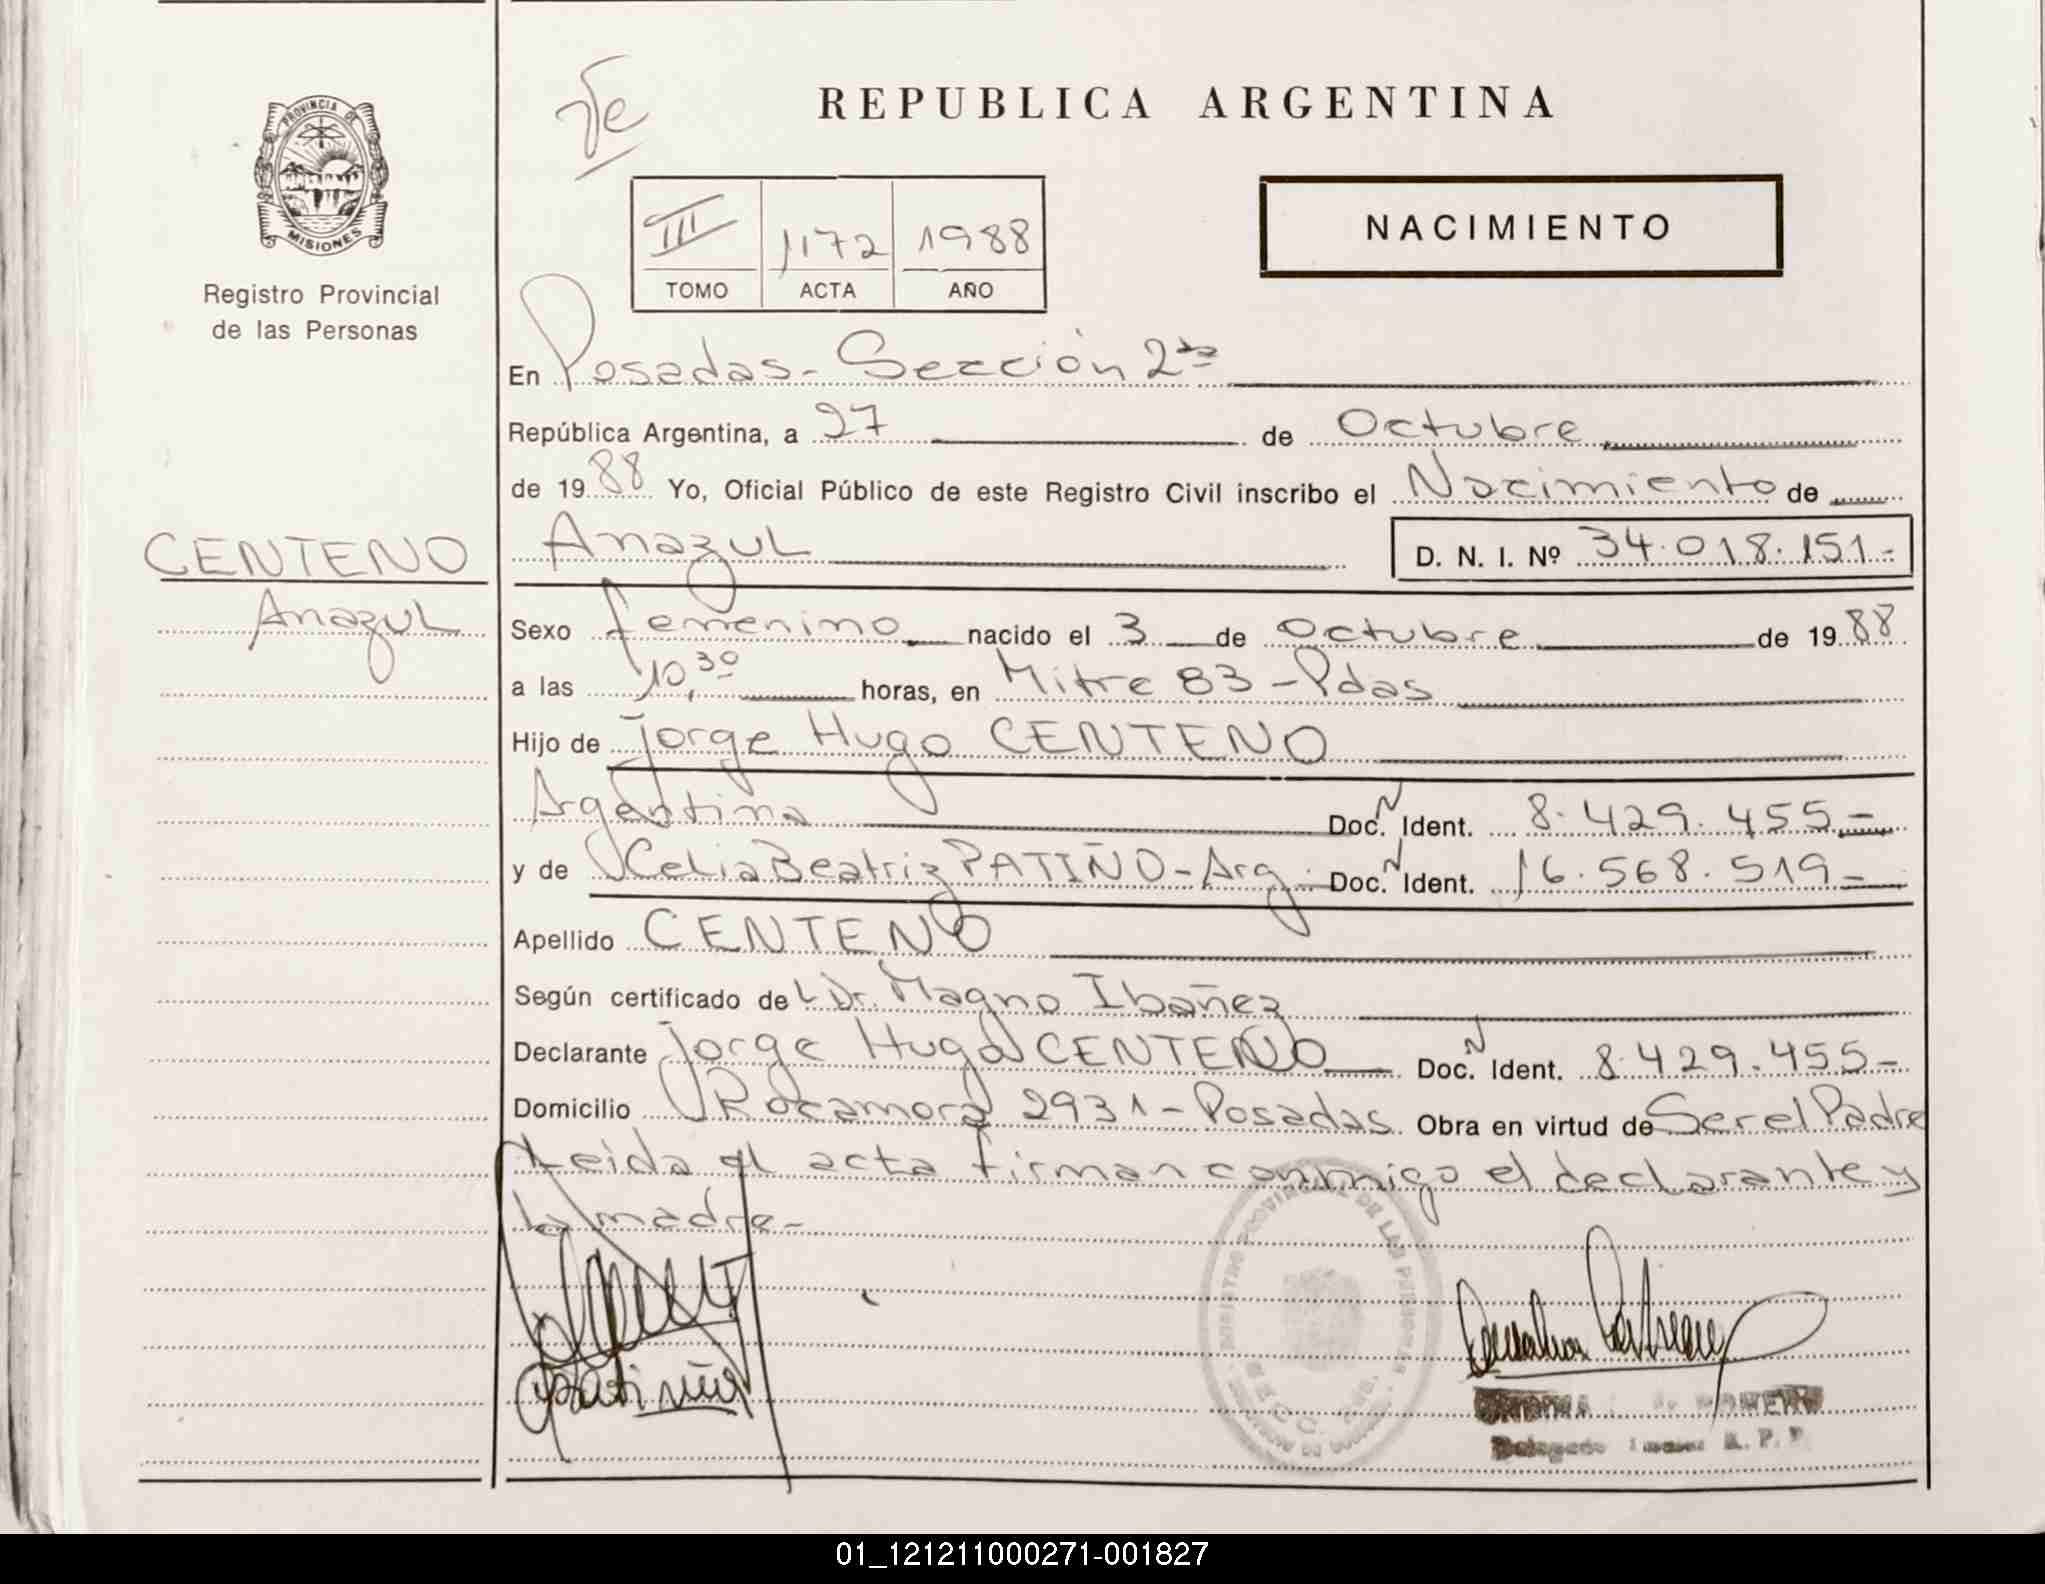 Te
REPUBLICA ARGENTINA
PROVINCIA DE
MISIONES
Registro Provincial
de las Personas
III 1172 1988
TOMO ACTA AÑO
NACIMIENTO
En Posadas - Sección 2da
República Argentina, a 27 de Octubre
de 1988 Yo, Oficial Público de este Registro Civil inscribo el Nacimiento de
CENTENO
Anazul
Anazul D. N. I. Nº 34.018.151.-
Sexo femenino nacido el 3 de Octubre de 1988
a las 10,30 horas, en Mitre 83 - Pdas
Hijo de Jorge Hugo CENTENO
Argentina Doc. N Ident. 8.429.455-
y de Celia Beatriz PATIÑO - Arg. Doc. N Ident. 16.568.519-
Apellido CENTENO
Según certificado del Dr. Magno Ibañez
Declarante Jorge Hugo CENTENO Doc. N Ident. 8.429.455-
Domicilio Rocamora 2931 - Posadas Obra en virtud de Ser el Padre
Leida el acta firman conmigo el declarante y
la madre-
Patiño
REGISTRO PROVINCIAL DE LAS PERSONAS
SECC. 2da.
Delegado R. P. P.
01_121211000271-001827